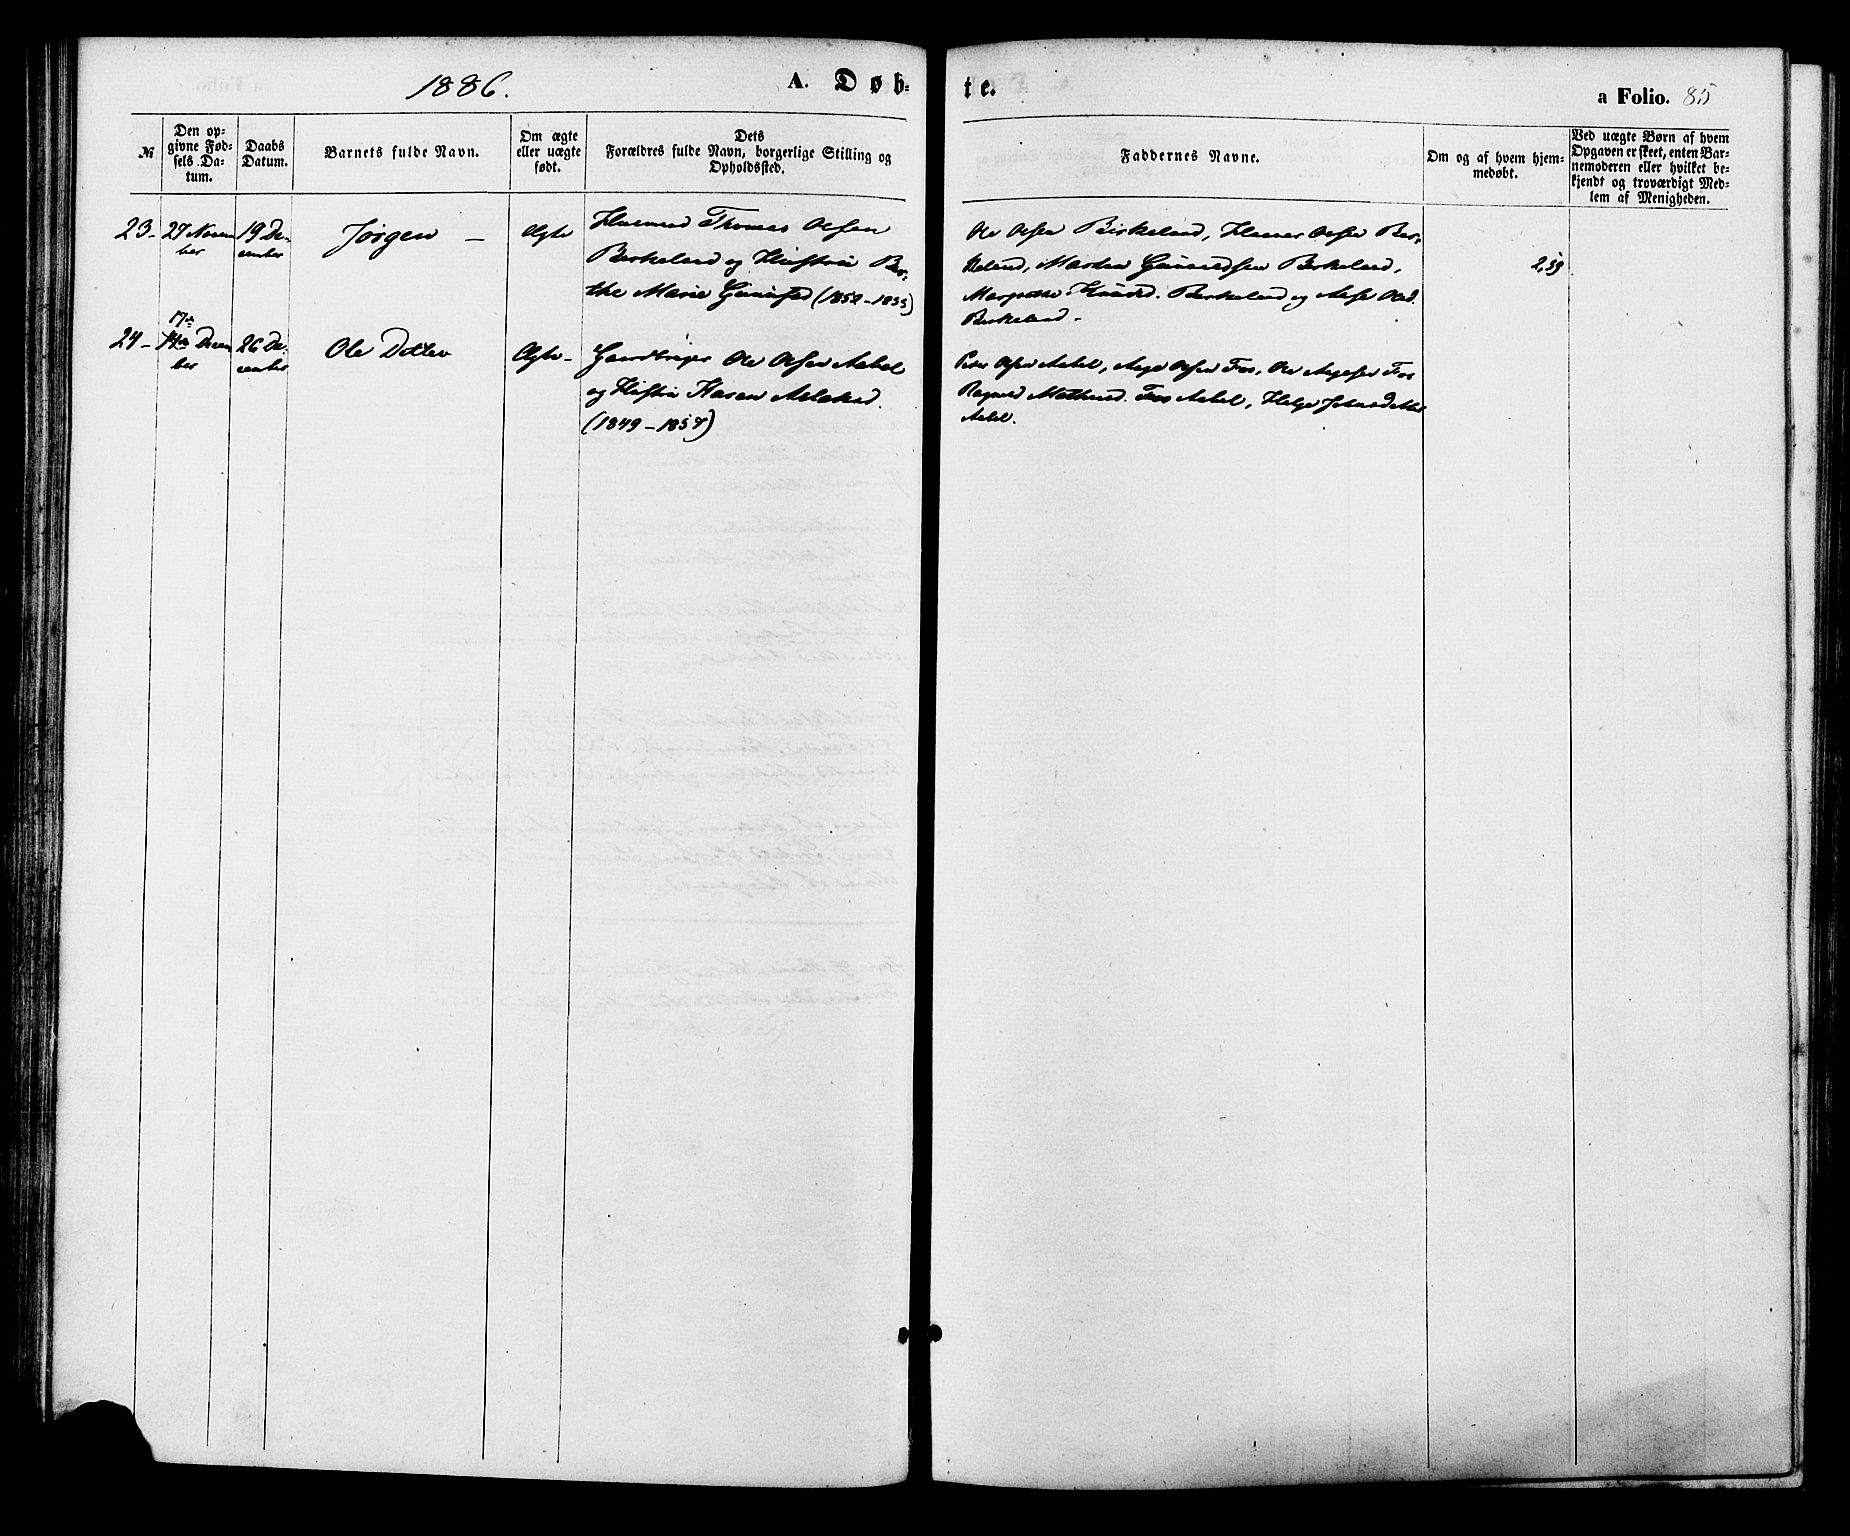 1886.
A. Døb-
te.
a Folio. 85
№
Den op-
givne Fød-
sels Da-
tum.
Daabs
Datum.
Barnets fulde Navn.
Om ægte
eller uægte
født.
Dets
Forældres fulde Navn, borgerlige Stilling og
Opholdssted.
Faddernes Navne.
Om og af hvem hjem-
medøbt.
Ved uægte Børn af hvem
Opgaven er skeet, enten Bar-
nemoderen eller hvilket be-
kjendt og troværdigt Med-
lem af Menigheden.
23- 27 Novem
ber
19 De-
cember
Jørgen -
Ægte
Thomas Olsen
Birkeland og Hustru Ber-
the Marie (1852-1855)
Ole Olsen Birkeland, Olsen Bir-
keland, Birkeland,
Margrethe Birkeland og
Birkeland.
24-
17de
Decem
ber
26 De-
cember
Ole Detlev
Ægte-
Ole Olsen Aabel
og Hustru Karen
(1849-1857)
Peder Olsen Aabel, Aage Olsen Fos, Ole Aagesen Fos
Aabel, Helge
Aabel.